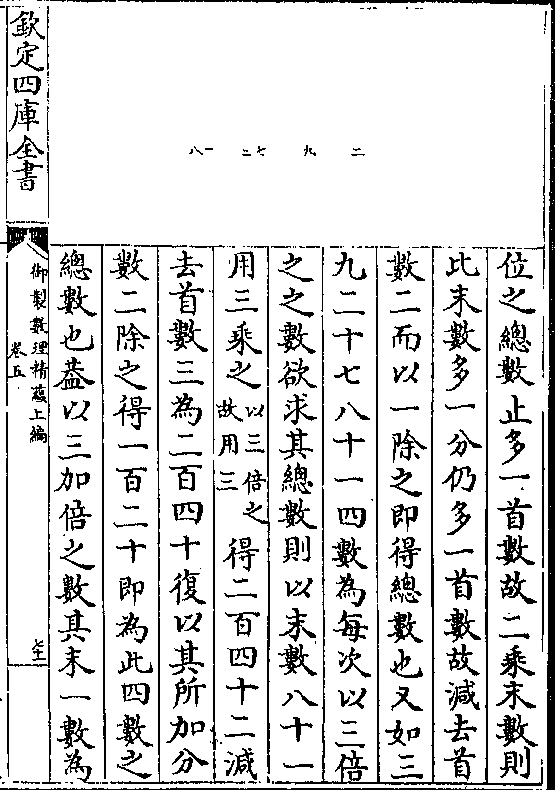 二
九
二七
八一
位之總數止多一首數故二乘末數則
比末數多一分仍多一首數故減去首
數二而以一除之即得總數也又如三
九二十七八十一四數為每次以三倍
之之數欲求其總數則以末數八十一
用三乘之以三倍之故用三得二百四十二減
去首數三為二百四十復以其所加分
數二除之得一百二十即為此四數之
總數也葢以三加倍之數其末一數為
欽定四庫全書
御製數理精蘊上編
卷五
七十一